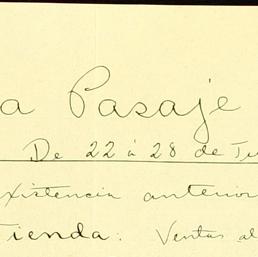 a Pasaje
De 22 á 28 de Ju
xistencia anterior
Tienda: Ventas al